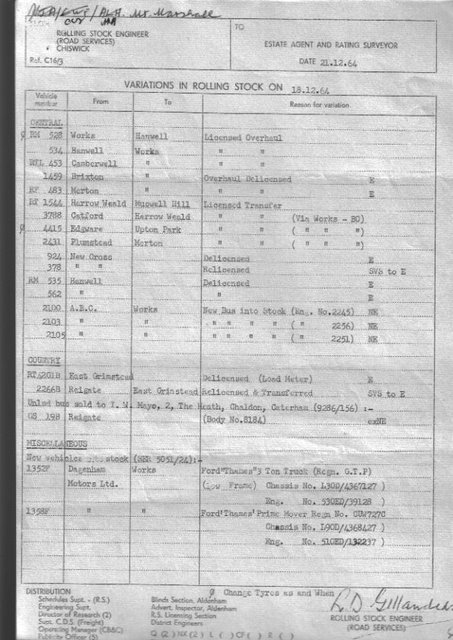 Mr. Marshall
ROLLING STOCK ENGINEER
(ROAD SERVICES)
CHISWICK
Ref. C16/3
TO
ESTATE AGENT AND RATING SURVEYOR
DATE 21.12.64
VARIATIONS IN ROLLING STOCK ON 18.12.64
Vehicle number From To Reason for variation
CENTRAL
ø RM 528 Works Hanwell Licensed Overhaul
534 Hanwell Works " "
RFL 453 Camberwell " " "
1459 Brixton " Overhaul Delicensed E
RF 483 Merton " " " E
RT 1544 Harrow Weald Muswell Hill Licensed Transfer
3788 Catford Harrow Weald " " (Via Works - BO)
ø 4415 Edgware Upton Park " " ( " " " )
2431 Plumstead Merton " " ( " " " )
924 New Cross Delicensed E
378 " " Relicensed SVS to E
RM 535 Hanwell Delicensed E
562 " " E
2100 A.E.C. Works New Bus into Stock (Eng. No.2245) NE
2103 " " " " " " ( " 2256) NE
2105 " " " " " " ( " 2251) NE
COUNTRY
RT 3201B East Grinstead Delicensed (Load Meter) E
2266B Reigate East Grinstead Relicensed & Transferred SVS to E
Unlsd bus sold to T. W. Mayo, 2, The Heath, Chaldon, Caterham (9286/156) :-
GS 19B Reigate (Body No.8184) exNE
MISCELLANEOUS
New vehicles into stock (SER 5051/24):-
1352F Dagenham Works Ford"Thames"3 Ton Truck (Regn. G.T.P)
Motors Ltd. (Low Frame) Chassis No. L30D/4367127 )
Eng. No. 530ED/39128 )
1358F " " Ford'Thames'Prime Mover Regn No. CUW727C
Chassis No. L90D/4368427 )
Eng. No. 510ED/132237 )
DISTRIBUTION
ø Change Tyres as and When
Schedules Supt. - (R.S.) Blinds Section, Aldenham
Engineering Supt. Advert. Inspector, Aldenham
Director of Research (2) R.S. Licensing Section
Supt. C.D.S. (Freight) District Engineers
Operating Manager (CB&C)
Publicity Officer (5)
ROLLING STOCK ENGINEER
(ROAD SERVICES)